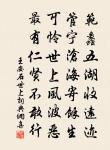 範蠡五湖收遠迹
管寧滄海寄餘生
可憐世上風波惡
最有仁賢不敢行
王安石世上詞典網書